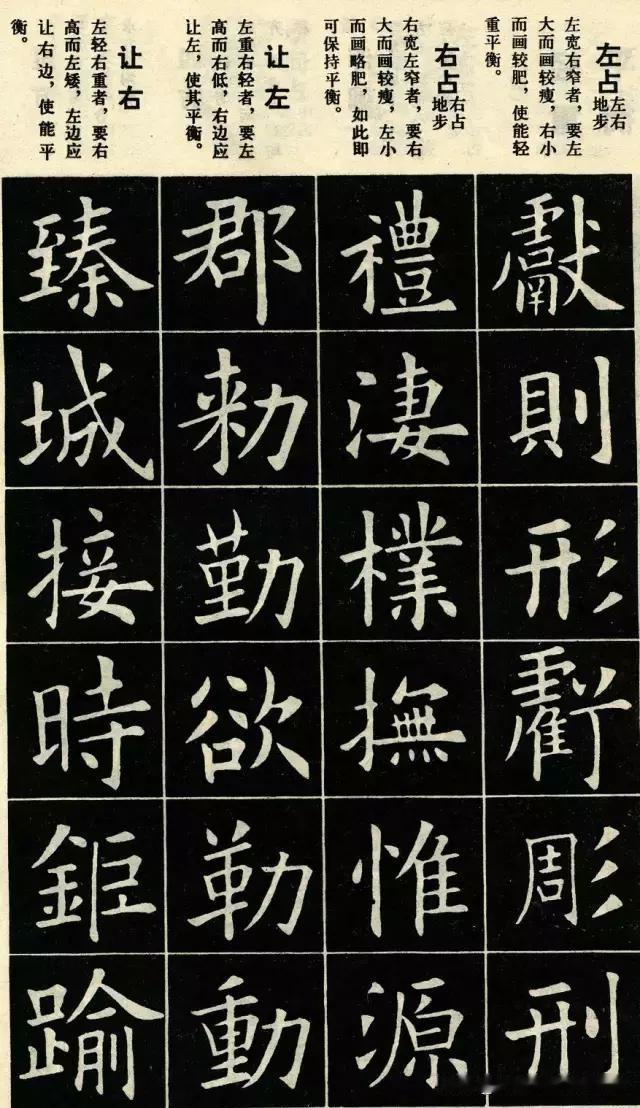 左占
左右
地步
左宽右窄者，要左
大而画较瘦，右小
而画较肥，使能轻
重平衡。
右占
右占
地步
右宽左窄者，要右
大而画较瘦，左小
而画略肥，如此即
可保持平衡。
让左
左重右轻者，要左
高而右低，右边应
让左，使其平衡。
让右
左轻右重者，要右
高而左矮，左边应
让右边，使能平
衡。
獻則形虧彫刑
禮淒樸撫惟源
郡勑勤欲勒動
臻城接時鉅踰